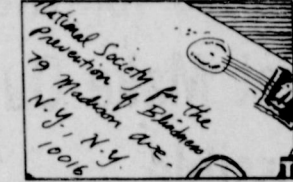 National Society for the
Prevention of Blindness
79 Madison Ave.
N.Y., N.Y.
10016